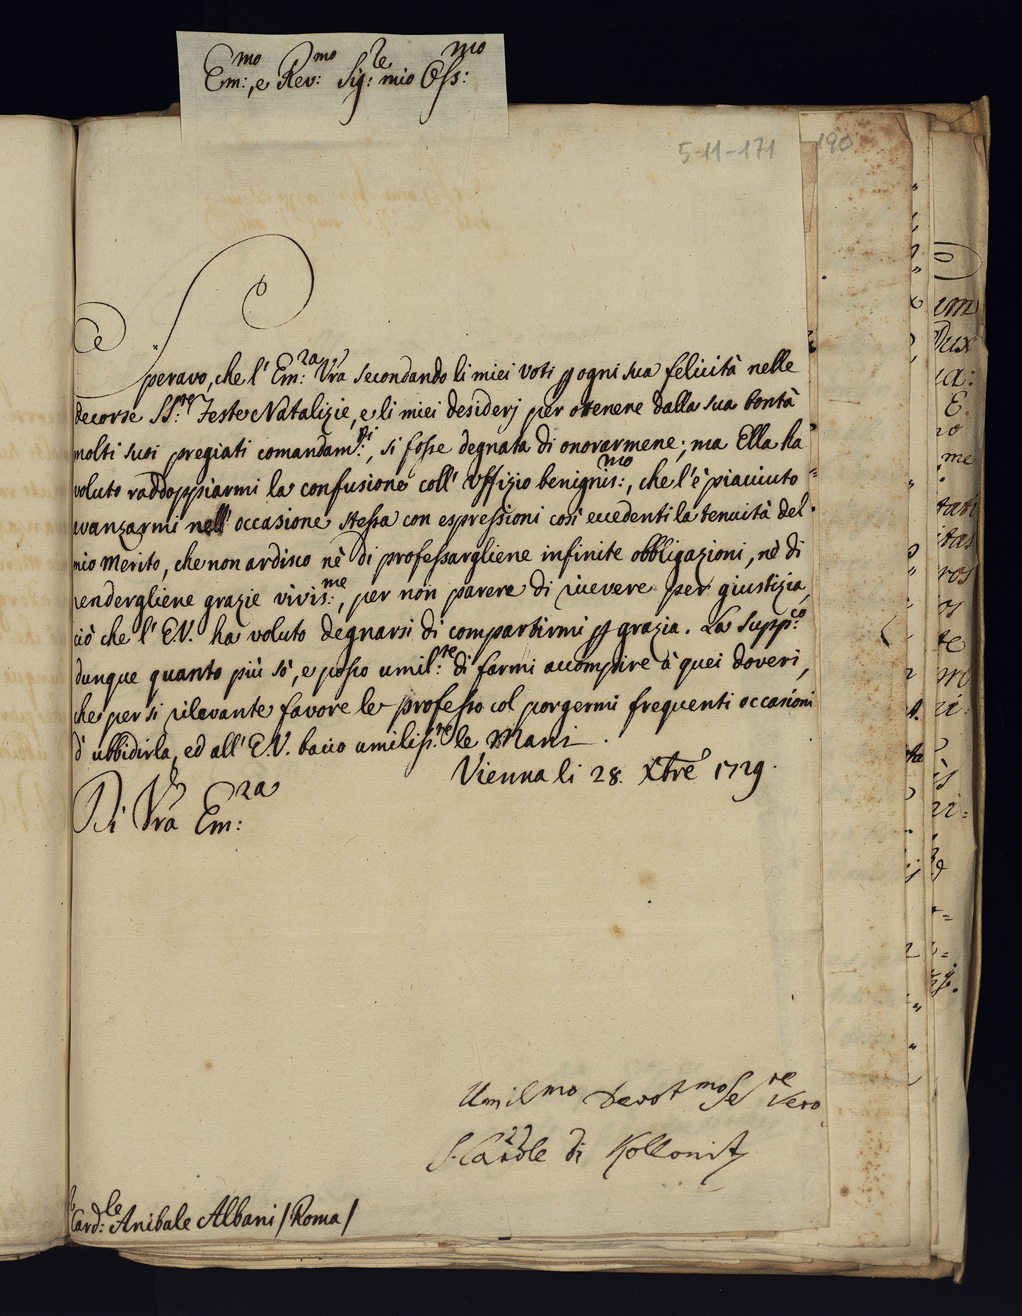 Em:mo, e Rev:mo Sig:re mio Oss:mo
5-11-171
190
Speravo, che l'Em:za Vra secondando li miei voti p ogni sua felicità nelle
decorse SS:te Feste Natalizie, e li miei desiderj per ottenere dalla sua bontà
molti suoi pregiati comandam:ti, si fosse degnata di onorarmene; ma Ella hà
voluto raddoppiarmi la confusione coll'Uffizio benignis:mo, che l'è piacciuto
avanzarmi nell'occasione stessa con espressioni così eccedenti la tenuità del
mio Merito, che non ardisco nè di professargliene infinite obbligazioni, nè di
rendergliene grazie vivis:me, per non parere di ricevere per giustizia,
ciò che l'E.V. ha voluto degnarsi di compartirmi p grazia. La supp:co
dunque quanto più sò, e posso umil:te di farmi accomplire à quei doveri,
che per si rilevante favore le professo col porgermi frequenti occasioni
d'ubbidirla, ed all'E.V. bacio umiliss:te le Mani.
Vienna li 28. Xbre 1729.
Di Vra Em:za
Umilmo Devotmo Sere Vero
S. Cardle di Kollonitz
Card:le Anibale Albani /Roma/